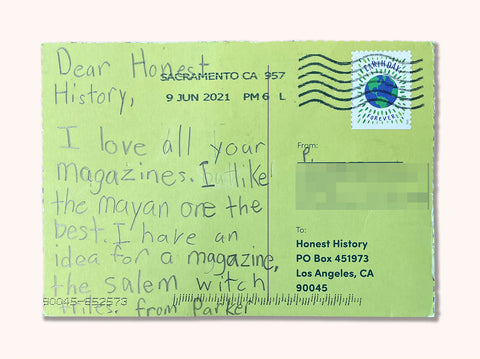 Dear Honest
SACRAMENTO CA 957
History,
9 JUN 2021 PM 6 L
EARTH DAY
FOREVER
I love all your
magazines. I like
the mayan one the
best. I have an
idea for a magazine,
the salem witch
triles. from Parker
From:
P.
To:
Honest History
PO Box 451973
Los Angeles, CA
90045
90045-852573